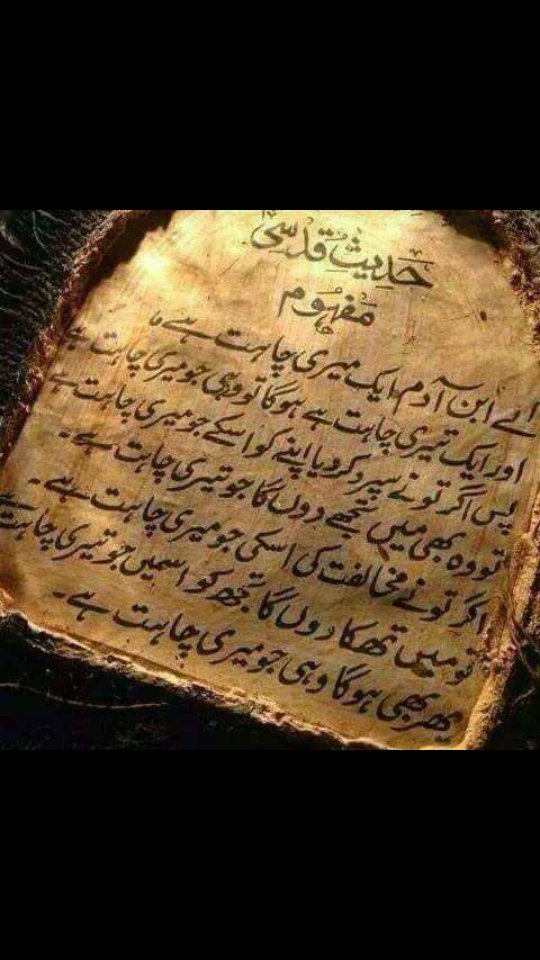 حَدِیثِ قُدسّی
مَفہُوم
اے ابن آدم ایک میری چاہت ہے
اور ایک تیری چاہت ہے ہوگا تو وہی جو میری چاہت ہے
پس اگر تو نے سپرد کر دیا اپنے کو اسکے جو میری چاہت ہے
تو وہ بھی میں تجھے دوں گا جو تیری چاہت ہے۔
اگر تو نے مخالفت کی اسکی جو میری چاہت ہے۔
تو میں تھکا دوں گا تجھ کو اسمیں جو تیری چاہت ہے
پھر بھی ہوگا وہی جو میری چاہت ہے۔